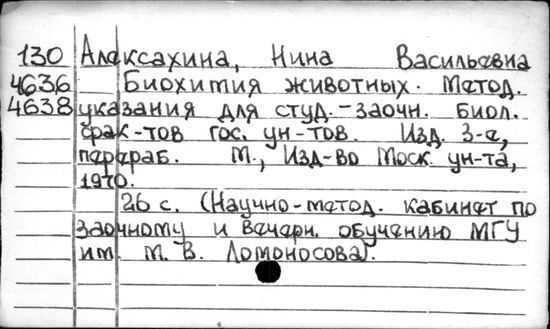 130 Алексахина, Нина Васильевна
4636 Биохимия животных. Метод.
4638 указания для студ.-заочн. биол.
фак-тов гос. ун-тов. Изд. 3-е,
перераб. М., Изд-во Моск. ун-та,
1970.
26 с. (Научно-метод. кабинет по
заочному и вечерн. обучению МГУ
им. М. В. Ломоносова).